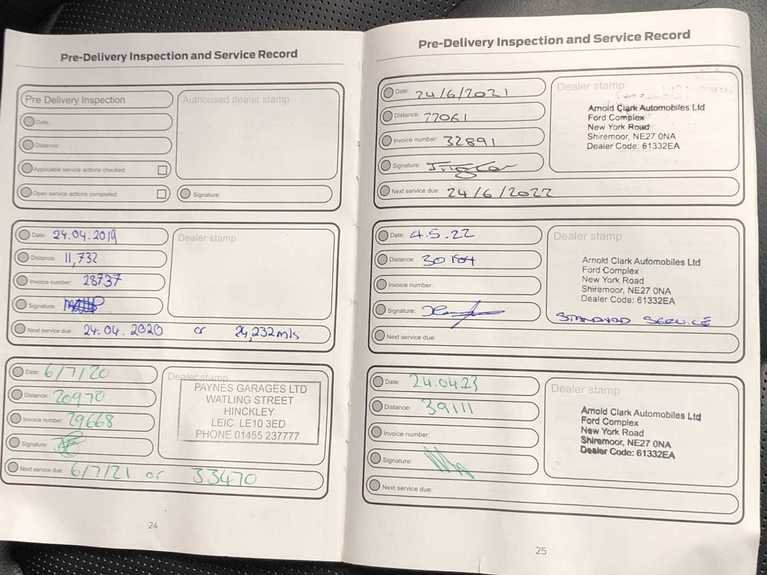 Pre-Delivery Inspection and Service Record
Pre Delivery Inspection
Authorised dealer stamp
Date:
Distance:
Applicable service actions checked:
Open service actions completed:
Signature:
Date: 24.04.2019
Dealer stamp
Distance: 11,732
Invoice number: 28737
Signature:
Next service due: 24.04.2020 or 24,232mls
Date: 6/7/20
Dealer stamp
Distance: 20970
Invoice number: 29668
Signature:
PAYNES GARAGES LTD
WATLING STREET
HINCKLEY
LEIC. LE10 3ED
PHONE 01455 237777
Next service due: 6/7/21 or 33470
24
Pre-Delivery Inspection and Service Record
Date: 24/6/2021
Dealer stamp
Distance:
Invoice number: 32891
Signature:
Arnold Clark Automobiles Ltd
Ford Complex
New York Road
Shiremoor, NE27 0NA
Dealer Code: 61332EA
Next service due: 24/6/2022
Date: 4.5.22
Dealer stamp
Distance:
Invoice number:
Signature:
Arnold Clark Automobiles Ltd
Ford Complex
New York Road
Shiremoor, NE27 0NA
Dealer Code: 61332EA
STANDARD SERVICE
Next service due:
Date: 24.04.23
Dealer stamp
Distance: 39111
Invoice number:
Signature:
Arnold Clark Automobiles Ltd
Ford Complex
New York Road
Shiremoor, NE27 0NA
Dealer Code: 61332EA
Next service due:
25